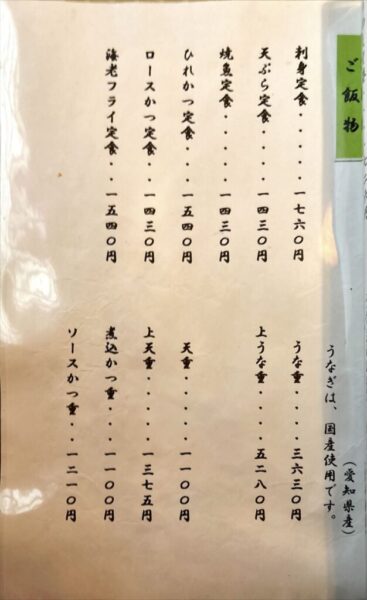 ご飯物
刺身定食・・・・・一七六〇円
天ぷら定食・・・・一四三〇円
焼魚定食・・・・・一四三〇円
ひれかつ定食・・・一五四〇円
ロースかつ定食・・一四三〇円
海老フライ定食・・一五四〇円
（愛知県産）
うなぎは、国産使用です。
うな重・・・・三六三〇円
上うな重・・・・五二八〇円
天重・・・・・一一〇〇円
上天重・・・・一三七五円
煮込かつ重・・一一〇〇円
ソースかつ重・・一二一〇円